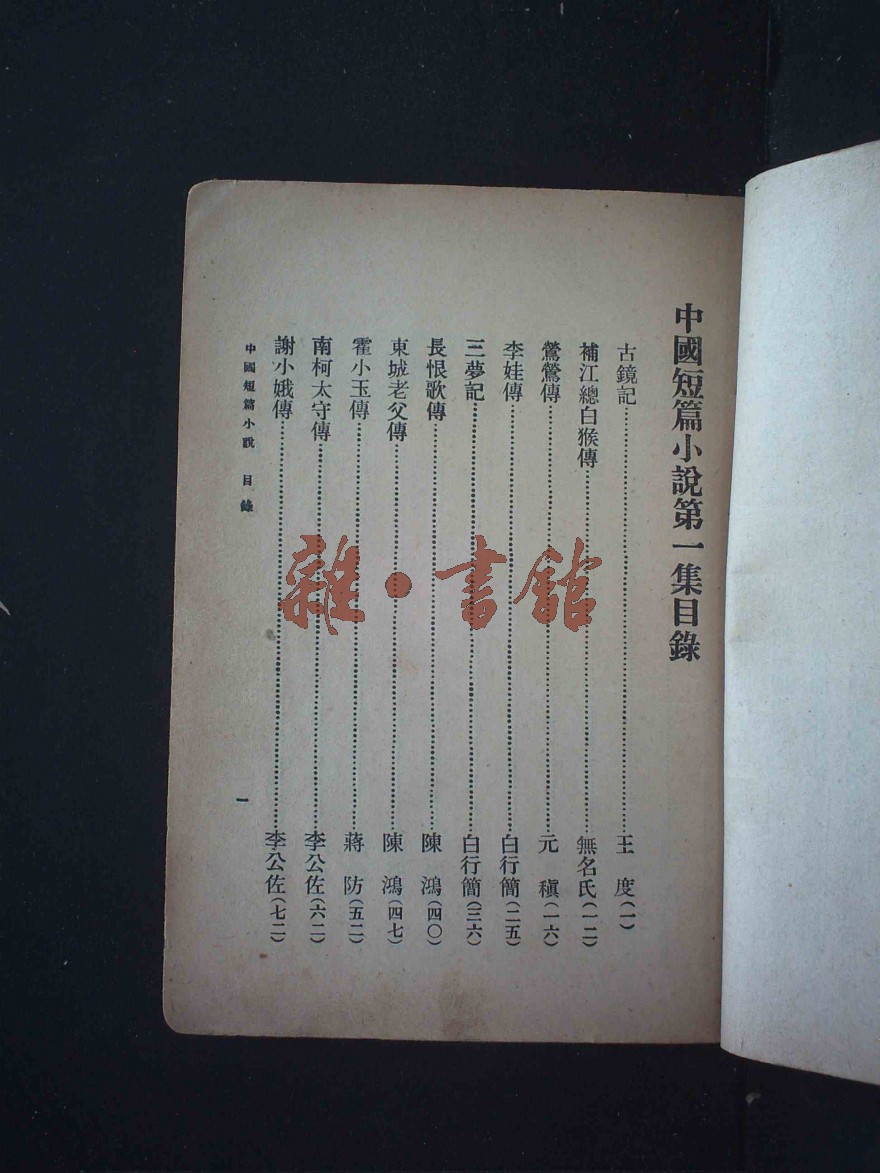 中國短篇小說第一集目錄
古鏡記⋯⋯王 度(一)
補江總白猴傳⋯⋯無名氏(一二)
鶯鶯傳⋯⋯元 稹(一六)
李娃傳⋯⋯白行簡(二五)
三夢記⋯⋯白行簡(三六)
長恨歌傳⋯⋯陳 鴻(四〇)
東城老父傳⋯⋯陳 鴻(四七)
霍小玉傳⋯⋯蔣 防(五二)
南柯太守傳⋯⋯李公佐(六二)
謝小娥傳⋯⋯李公佐(七二)
中國短篇小說 目錄 一
雜·書館